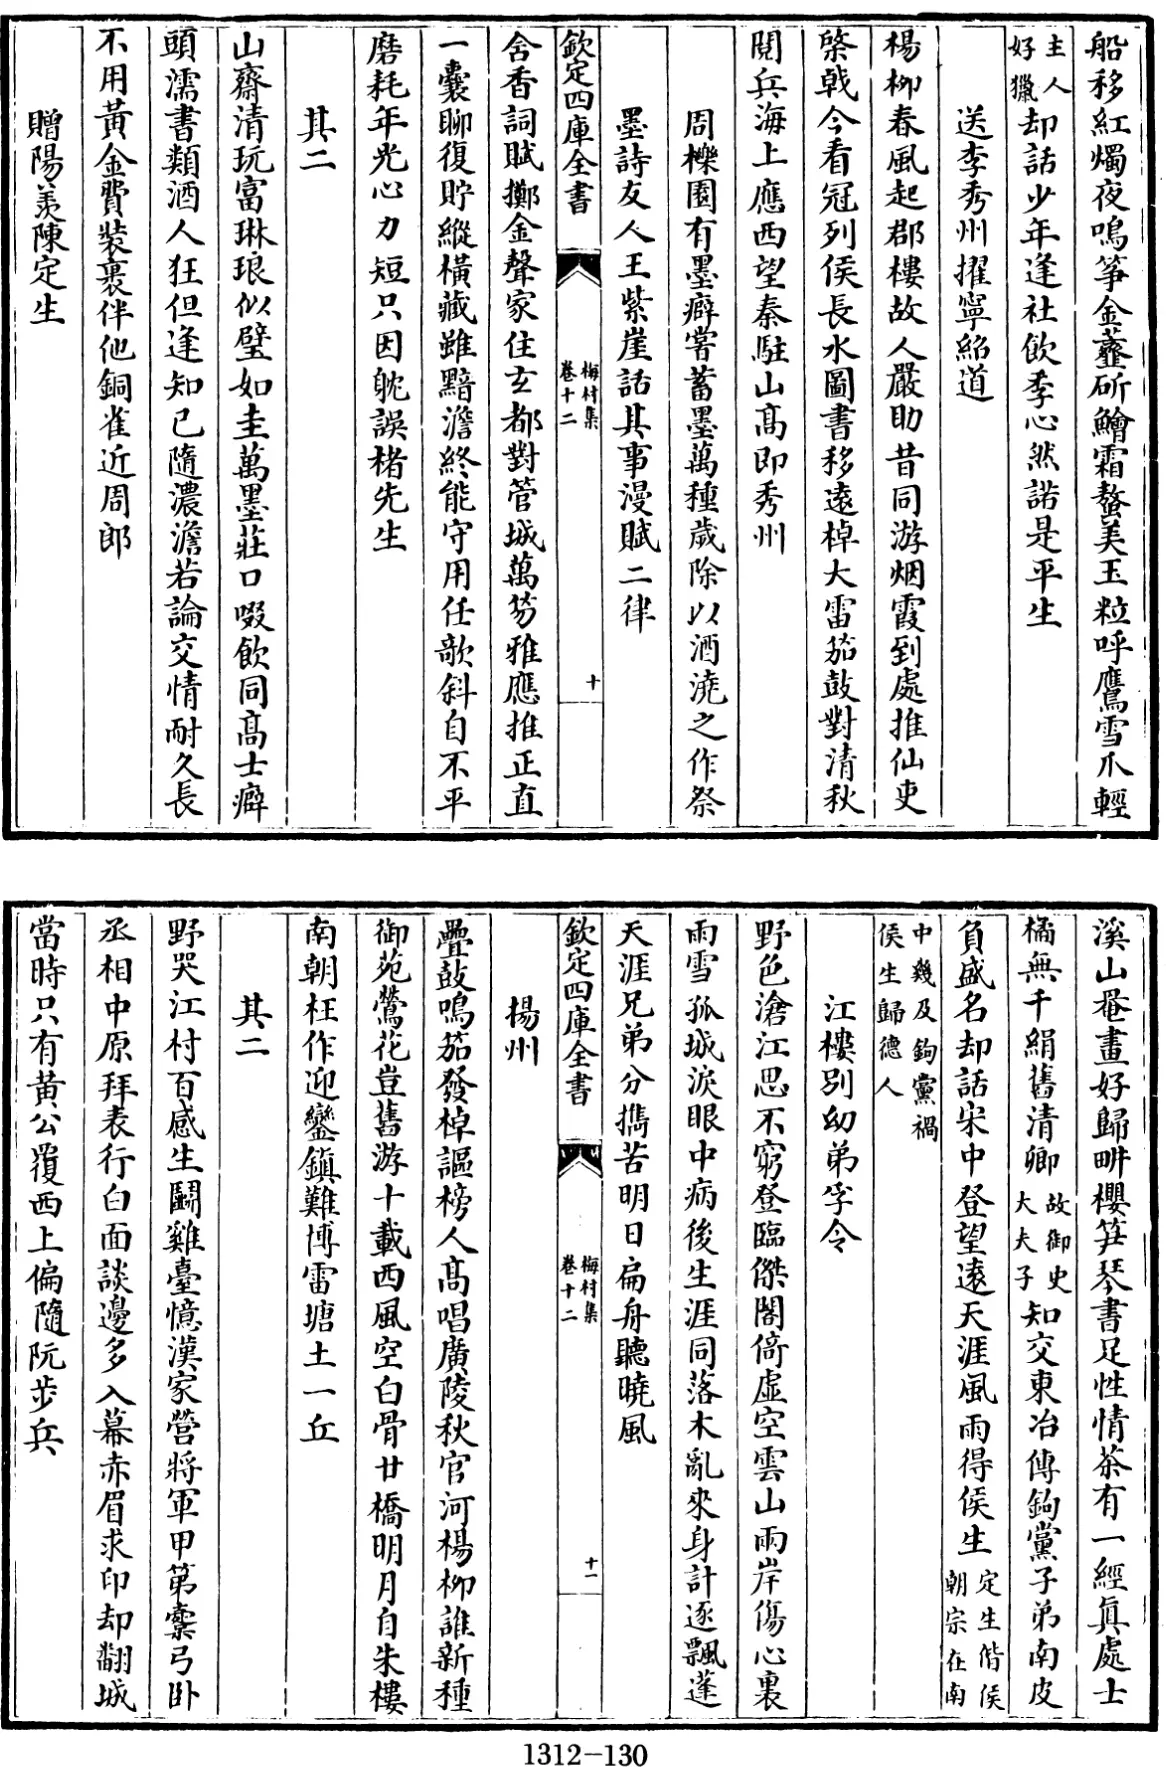 船移紅燭夜鳴箏金虀斫鱠霜螯美玉粒呼鷹雪爪輕
主人好獵却話少年逢社飲季心然諾是平生
送李秀州擢寧紹道
楊柳春風起郡樓故人嚴助昔同游烟霞到處推仙吏
棨戟今看冠列侯長水圖書移遠棹大雷笳鼓對清秋
閱兵海上應西望秦駐山高即秀州
周櫟園有墨癖嘗蓄墨萬種歲除以酒澆之作祭
墨詩友人王紫崖話其事漫賦二律
欽定四庫全書
梅村集
卷十二
十
含香詞賦擲金聲家住玄都對管城萬笏雅應推正直
一囊聊復貯縱橫藏雖黯澹終能守用任欹斜自不平
磨耗年光心力短只因躭誤楮先生
其二
山齋清玩富琳琅似璧如圭萬墨莊口啜飲同高士癖
頭濡書類酒人狂但逢知已隨濃澹若論交情耐久長
不用黃金費裝裹伴他銅雀近周郎
贈陽羨陳定生
溪山罨畫好歸畊櫻筍琴書足性情茶有一經真處士
橘無千絹舊清卿故御史大夫子知交東冶傳鉤黨子弟南皮
負盛名却話宋中登望遠天涯風雨得侯生定生偕侯朝宗在南
中幾及鉤黨禍侯生歸德人
江樓別幼弟孚令
野色滄江思不窮登臨傑閣倚虛空雲山兩岸傷心裏
雨雪孤城淚眼中病後生涯同落木亂來身計逐飄蓬
天涯兄弟分攜苦明日扁舟聽曉風
欽定四庫全書
梅村集
卷十二
十一
揚州
疊鼓鳴笳發棹謳榜人高唱廣陵秋官河楊柳誰新種
御苑鶯花豈舊游十載西風空白骨廿橋明月自朱樓
南朝枉作迎鑾鎮難博雷塘土一丘
其二
野哭江村百感生鬬雞臺憶漢家營將軍甲第櫜弓臥
丞相中原拜表行白面談邊多入幕赤眉求印却翻城
當時只有黃公覆西上偏隨阮步兵
1312-130